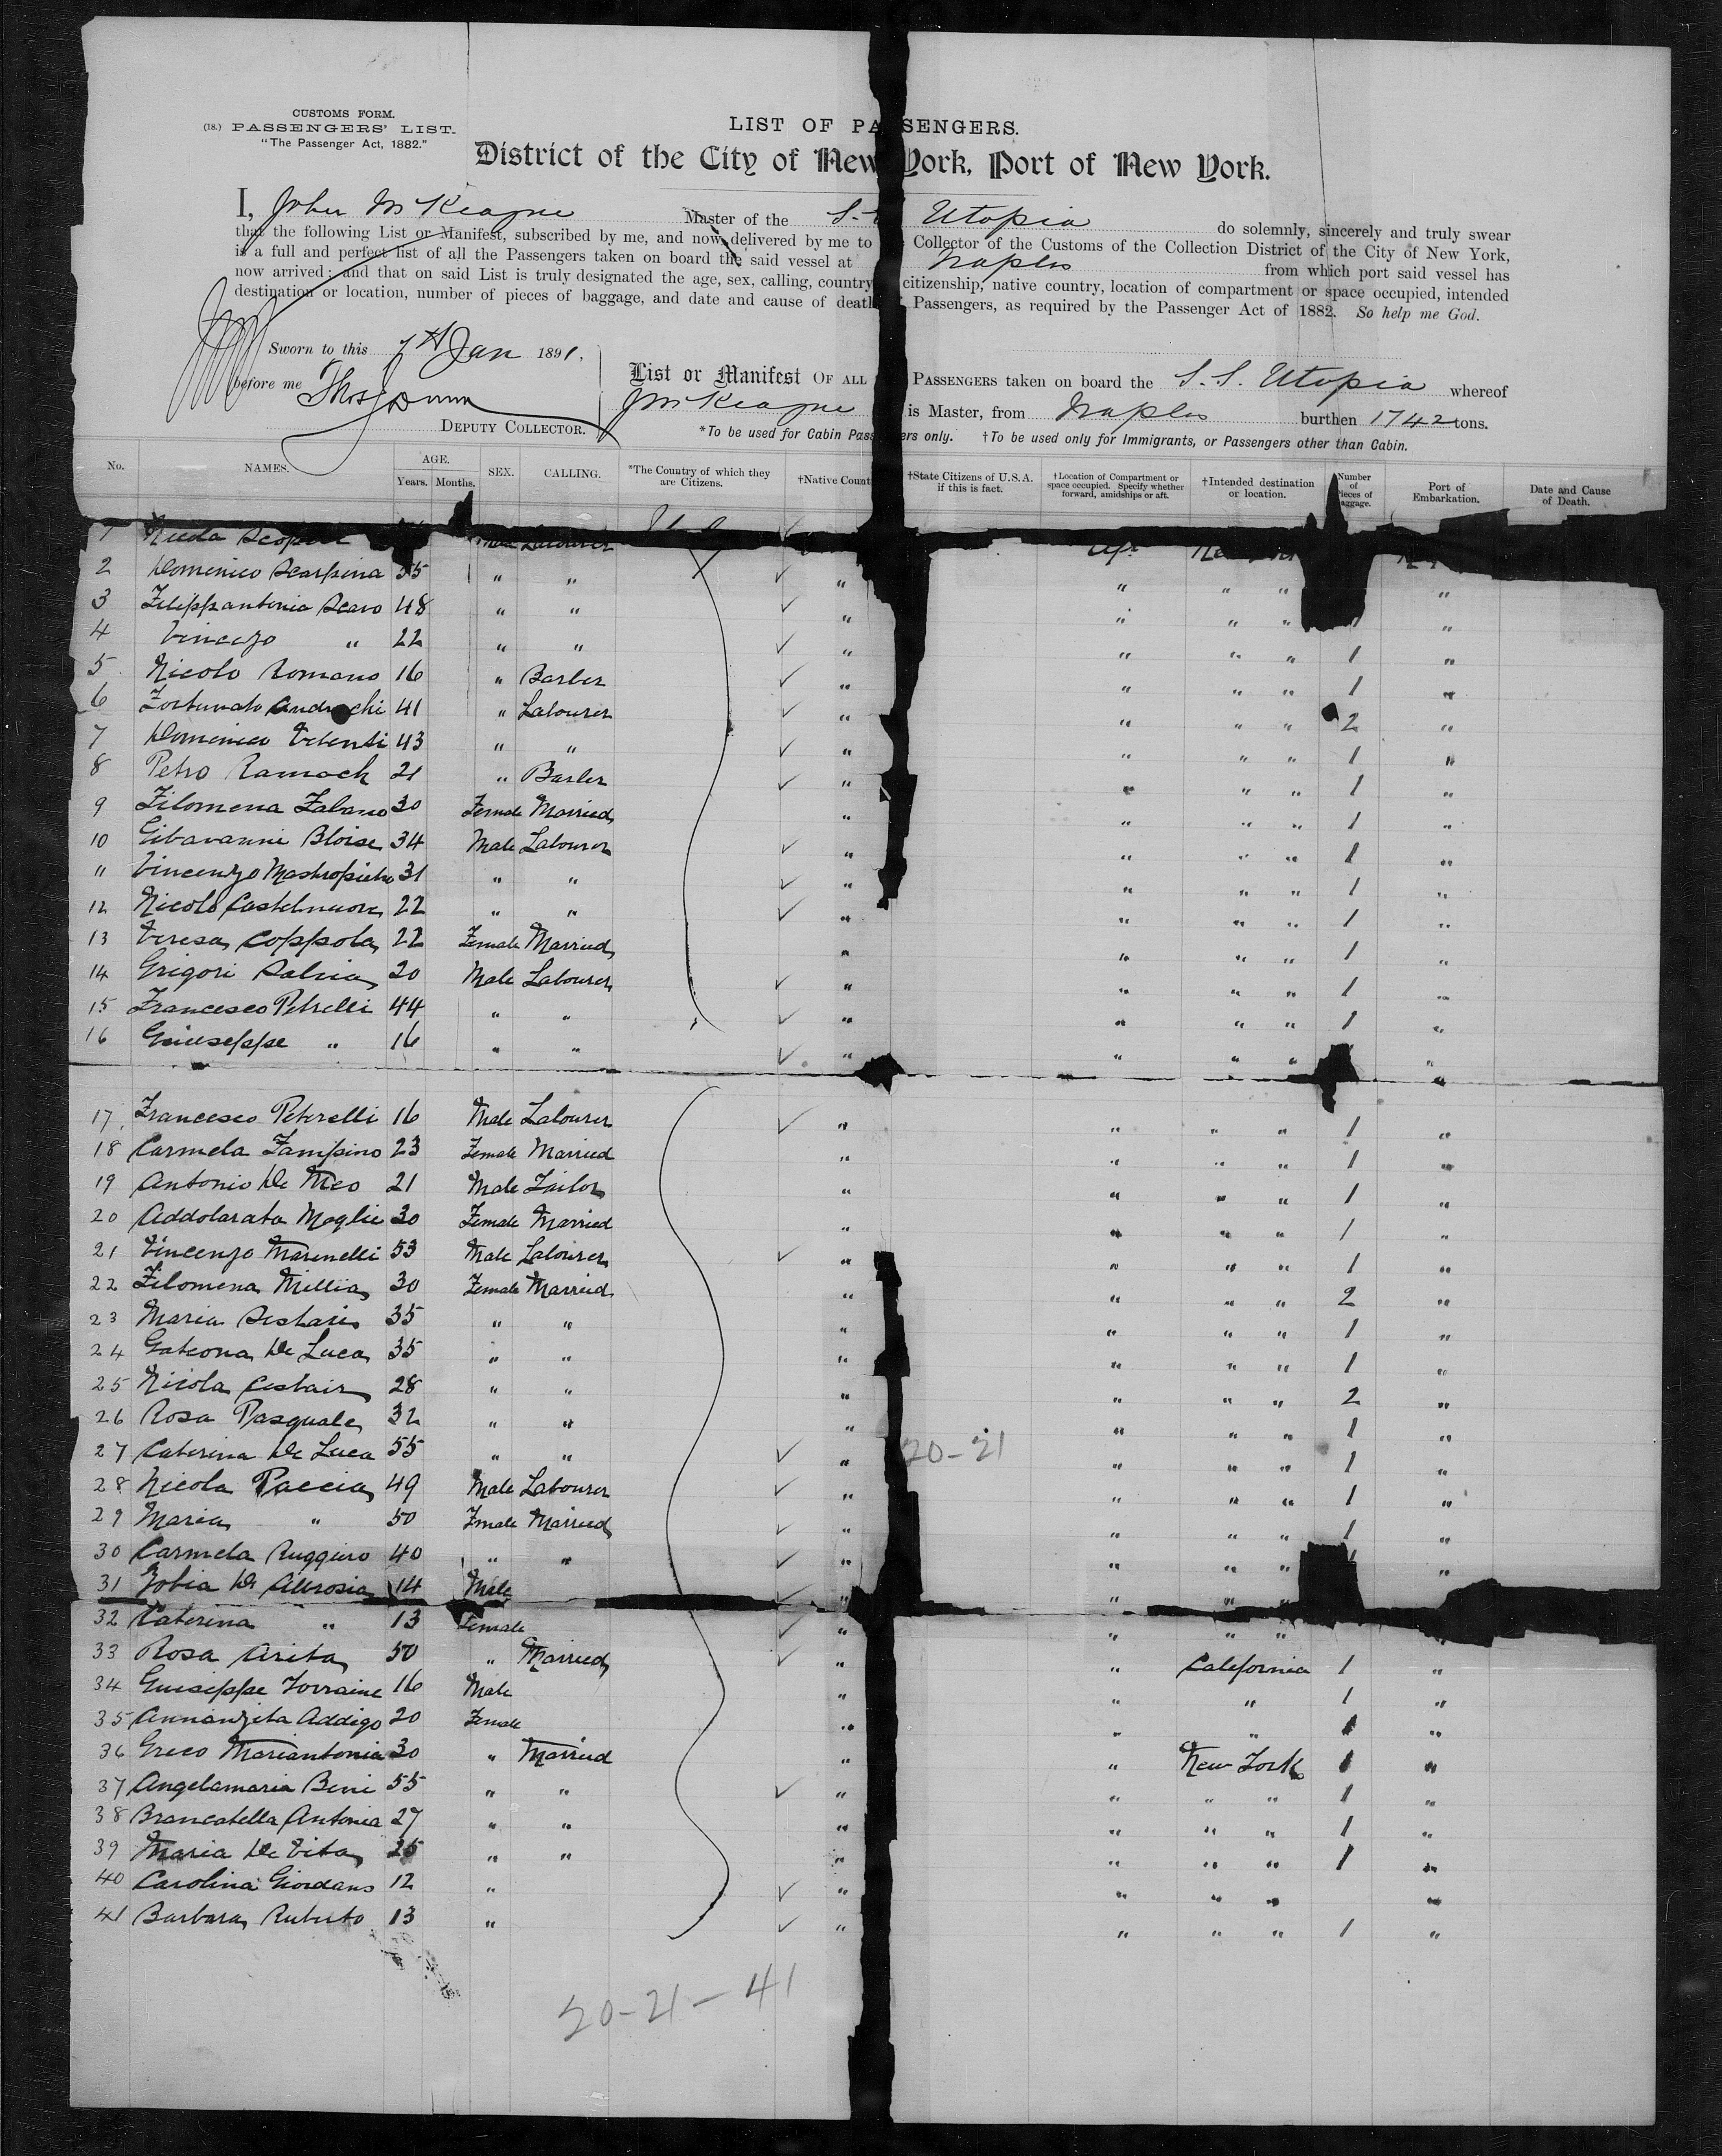 CUSTOMS FORM.
(18.) PASSENGERS' LIST.
"The Passenger Act, 1882."
LIST OF PASSENGERS.
District of the City of New York, Port of New York.
I, John McKeague Master of the S. Utopia do solemnly, sincerely and truly swear
that the following List or Manifest, subscribed by me, and now delivered by me to Collector of the Customs of the Collection District of the City of New York,
is a full and perfect list of all the Passengers taken on board the said vessel at Naples from which port said vessel has
now arrived; and that on said List is truly designated the age, sex, calling, country citizenship, native country, location of compartment or space occupied, intended
destination or location, number of pieces of baggage, and date and cause of death Passengers, as required by the Passenger Act of 1882. So help me God.
Sworn to this 7th Jan 1891.
before me Thos J Dunn
DEPUTY COLLECTOR.
List or Manifest OF ALL PASSENGERS taken on board the S. S. Utopia whereof
J McKeague is Master, from Naples burthen 1742 tons.
*To be used for Cabin Passengers only. †To be used only for Immigrants, or Passengers other than Cabin.
No. NAMES. AGE. Years. Months. SEX. CALLING. *The Country of which they are Citizens. †Native Count †State Citizens of U.S.A. if this is fact. †Location of Compartment or space occupied. Specify whether forward, amidships or aft. †Intended destination or location. Number of Pieces of Baggage. Port of Embarkation. Date and Cause of Death.
1 Nicola Labourer
2 Domenico Scarpina 35 " " " " " " "
3 Filippantonia Scavo 48 " " " " " " "
4 Vincenzo " 22 " " " " " " 1 "
5 Nicolo Romano 16 " Barber " " " " 1 "
6 Fortunato 41 " Labourer " " " " 2 "
7 Domenico 43 " " " " " " 1 "
8 Petro Ramack 21 " Barber " " " " 1 "
9 Filomena Fabano 30 Female Married " " " " 1 "
10 Gibavanni Bloise 34 Male Labourer " " " " 1 "
11 Vincenzo Mastropietro 31 " " " " " " 1 "
12 Nicolo Castelnuovo 22 " " " " " " 1 "
13 Teresa Coppola 22 Female Married " " " " 1 "
14 Grigori Salvia 20 Male Labourer " " " " 1 "
15 Francesco Petrelli 44 " " " " " " 1 "
16 Giuseppe " 16 " " " " " " "
17 Francesco Peterelli 16 Male Labourer " " " " 1 "
18 Carmela Zampino 23 Female Married " " " " 1 "
19 Antonio De Meo 21 Male Tailor " " " " 1 "
20 Addolarata Moglie 30 Female Married " " " " 1 "
21 Vincenzo Marinelli 53 Male Labourer " " " " 1 "
22 Filomena Millia 30 Female Married " " " " 2 "
23 Maria 35 " " " " " " 1 "
24 De Luca 35 " " " " " " 1 "
25 Nicola 28 " " " " " " 2 "
26 Rosa Pasquale 32 " " " " " " 1 "
27 Caterina De Luca 55 " " " 20-21 " " " 1 "
28 Nicola Paccia 49 Male Labourer " " " " 1 "
29 Maria " 50 Female Married " " " " 1 "
30 Carmela Ruggiero 40 " " " " " " "
31 De 14 Male " " "
32 Caterina " 13 Female " " " " "
33 Rosa Arieta 50 " Married " " California 1 "
34 Guiseppe Torraine 16 Male " " " 1 "
35 Annanzita Addigo 20 Female " " " 1 "
36 Greco Mariantonia 30 " Married " " New York 1 "
37 Angelamaria Beni 55 " " " " " " 1 "
38 Brancatella Antonia 27 " " " " " " 1 "
39 Maria De Vita 25 " " " " " " 1 "
40 Carolina Giordano 12 " " " " " "
41 Barbara Ruberto 13 " " " " " 1 "
20-21-41